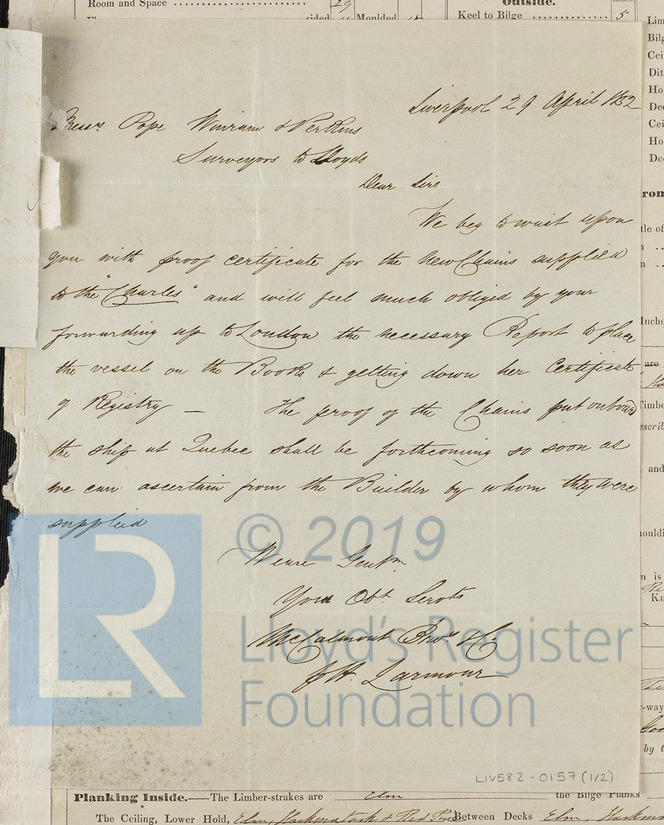 Room and Space
29
sided
Moulded
Outside.
Keel to Bilge
5
Liverpool 29 April 1852
Messrs Pope Winram & Perkins
Surveyors to Lloyds
Dear Sirs
We beg to wait upon
you with proof certificate for the new Chains supplied
to the "Charles" and will feel much obliged by your
forwarding up to London the necessary Report to place
the vessel on the Books & getting down her Certificate
of Registry — The proof of the Chains put onboard
the ship at Quebec shall be forthcoming so soon as
we can ascertain from the Builder by whom they were
supplied
We are Gentn
Your Obt Servts
McCalmont Bros & Co
J H Larmour
LR
© 2019
Lloyd's Register
Foundation
LIV582-0157 (1/2)
Planking Inside.—The Limber-strakes are Elm the Bilge Planks
The Ceiling, Lower Hold, Elm, Hackmatack & Red Pine Between Decks Elm,